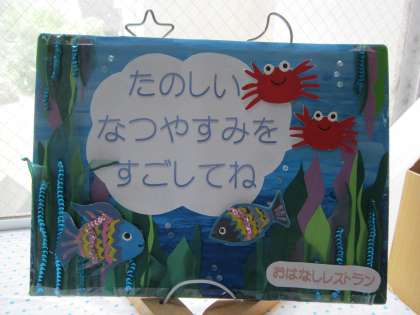 たのしい
なつやすみを
すごしてね
おはなしレストラン